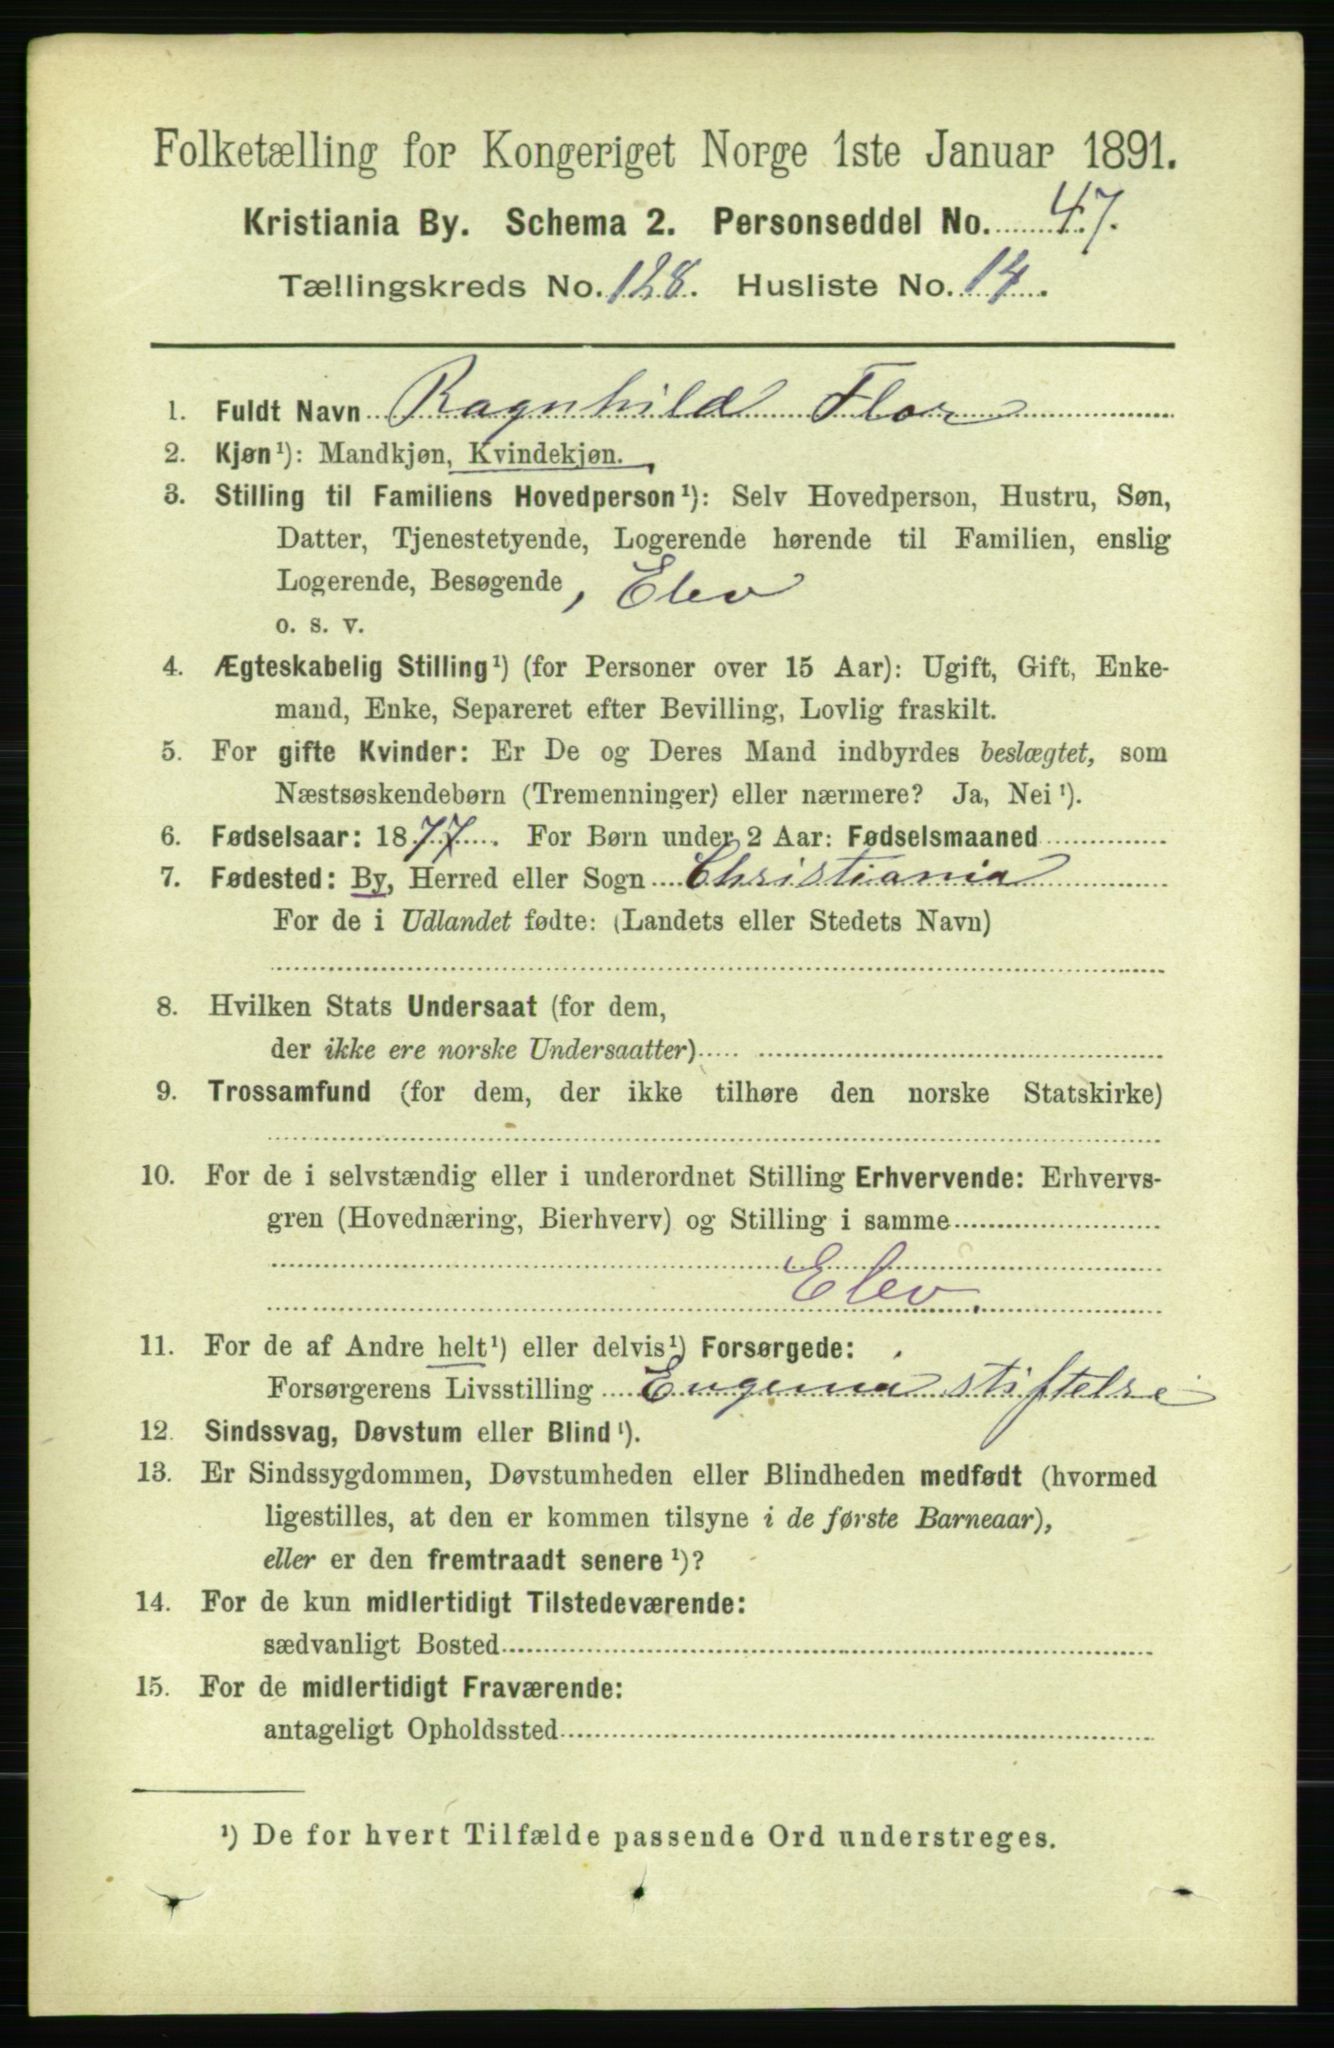 Folketælling for Kongeriget Norge 1ste Januar 1891.
Kristiania By. Schema 2. Personseddel No. 47.
Tællingskreds No. 128. Husliste No. 14.
1. Fuldt Navn Ragnhild Flor
2. Kjøn¹): Mandkjøn, Kvindekjøn.
3. Stilling til Familiens Hovedperson¹): Selv Hovedperson, Hustru, Søn,
Datter, Tjenestetyende, Logerende hørende til Familien, enslig
Logerende, Besøgende, Elev
o. s. v.
4. Ægteskabelig Stilling¹) (for Personer over 15 Aar): Ugift, Gift, Enke-
mand, Enke, Separeret efter Bevilling, Lovlig fraskilt.
5. For gifte Kvinder: Er De og Deres Mand indbyrdes beslægtet, som
Næstsøskendebørn (Tremenninger) eller nærmere? Ja, Nei¹).
6. Fødselsaar: 1877. For Børn under 2 Aar: Fødselsmaaned
7. Fødested: By, Herred eller Sogn Christiania
For de i Udlandet fødte: (Landets eller Stedets Navn)
8. Hvilken Stats Undersaat (for dem,
der ikke ere norske Undersaatter)
9. Trossamfund (for dem, der ikke tilhøre den norske Statskirke)
10. For de i selvstændig eller i underordnet Stilling Erhvervende: Erhvervs-
gren (Hovednæring, Bierhverv) og Stilling i samme
Elev.
11. For de af Andre helt¹) eller delvis¹) Forsørgede:
Forsørgerens Livsstilling Eugenia stiftelse
12. Sindssvag, Døvstum eller Blind¹).
13. Er Sindssygdommen, Døvstumheden eller Blindheden medfødt (hvormed
ligestilles, at den er kommen tilsyne i de første Barneaar),
eller er den fremtraadt senere¹)?
14. For de kun midlertidigt Tilstedeværende:
sædvanligt Bosted
15. For de midlertidigt Fraværende:
antageligt Opholdssted
¹) De for hvert Tilfælde passende Ord understreges.